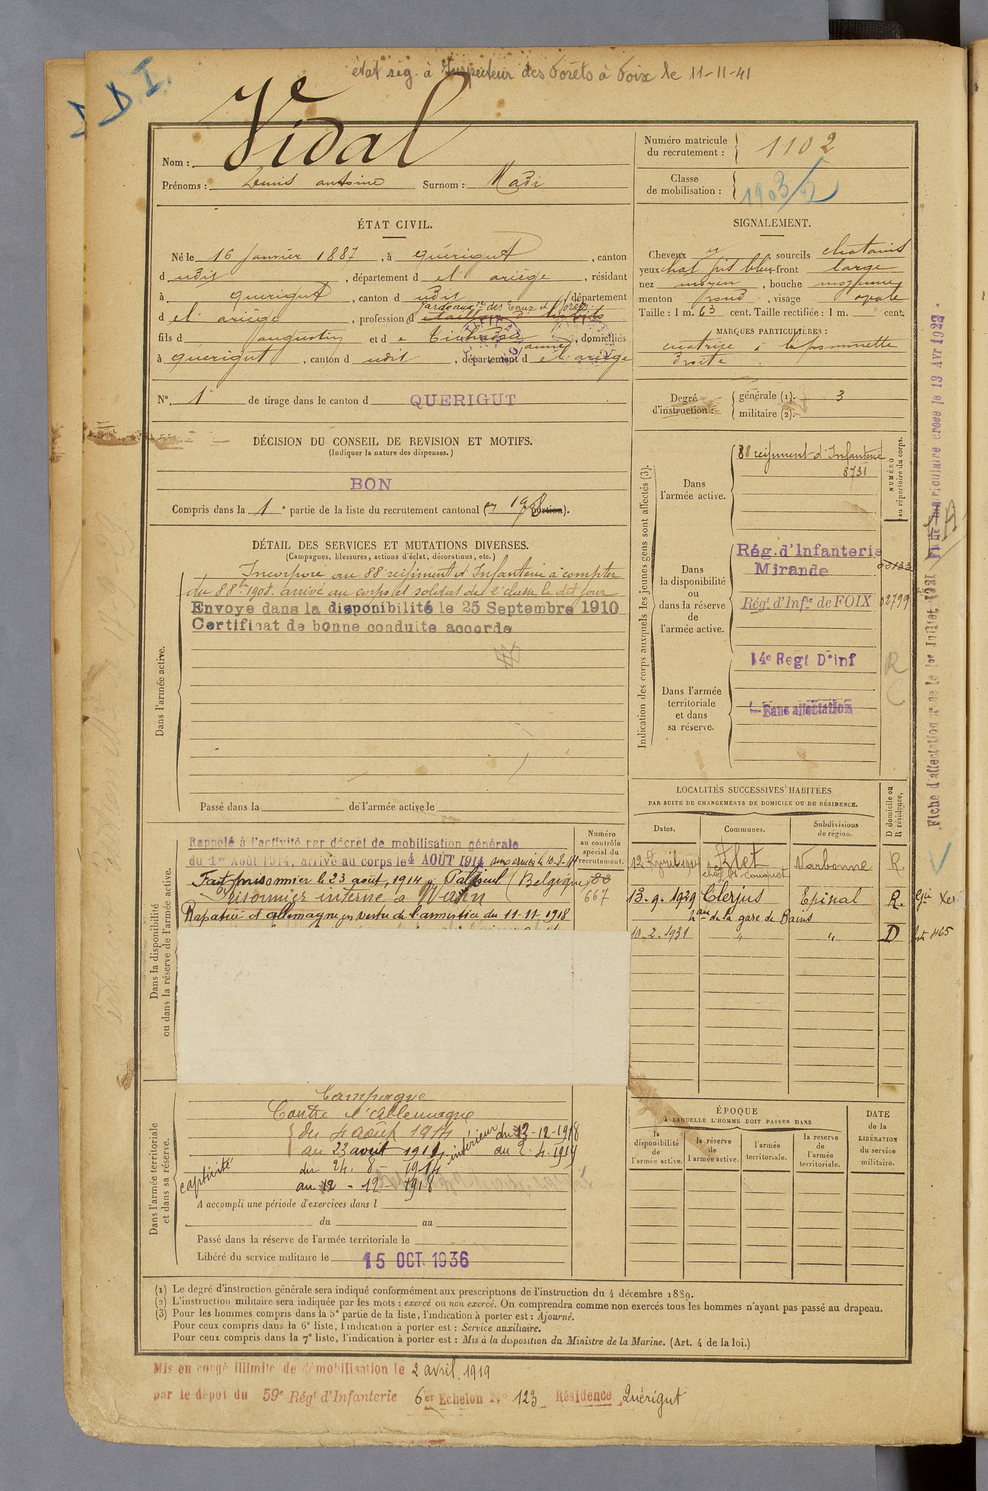 état sig. à Inspecteur des Forêts à Foix le 11-11-41
Nom : Vidal
Prénoms : Louis Antoine Surnom : Madi
Numéro matricule du recrutement : 1102
Classe de mobilisation :
ÉTAT CIVIL.
Né le 16 janvier 1887, à Quérigut, canton
d udit, département d el ariège, résidant
à Querigut, canton d udit, département
d el ariège, profession d
fils d et d , domiciliés
à Querigut, canton d udit, département d el ariège
N° 1 de tirage dans le canton d QUERIGUT
DÉCISION DU CONSEIL DE REVISION ET MOTIFS.
(Indiquer la nature des dispenses.)
BON
Compris dans la 1e partie de la liste du recrutement cantonal
SIGNALEMENT.
Cheveux et sourcils chatains
yeux front large
nez moyen, bouche moyenne
menton rond, visage ovale
Taille : 1 m. 63 cent. Taille rectifiée : 1 m. cent.
MARQUES PARTICULIÈRES :
cicatrice à la pommette
droite
Degré d'instruction : générale (1). 3
militaire (2).
DÉTAIL DES SERVICES ET MUTATIONS DIVERSES.
(Campagnes, blessures, actions d'éclat, décorations, etc.)
Dans l'armée active.
Incorporé au 88e régiment d'Infanterie à compter
du 8 8bre 1908. arrivé au corps et soldat de 2e classe le dit jour
Envoyé dans la disponibilité le 25 Septembre 1910
Certificat de bonne conduite accordé
Passé dans la de l'armée active le
Indication des corps auxquels les jeunes gens sont affectés (3).
NUMÉRO au répertoire du corps.
Dans l'armée active.
88 régiment d'Infanterie
8731
Dans la disponibilité ou dans la réserve de l'armée active.
Rég. d'Infanterie
Mirande
Régt d'Infie de FOIX 02799
Dans l'armée territoriale et dans sa réserve.
14e Regt D'inf
Sans affectation
Fiche d'affectation créée le 1er Juillet 1921
Fiche matriculaire créée le 19 Avr 1922
LOCALITÉS SUCCESSIVES HABITÉES
PAR SUITE DE CHANGEMENTS DE DOMICILE OU DE RÉSIDENCE.
Dates. Communes. Subdivisions de région. D domicile ou R résidence.
Alet Narbonne R
13.9.1929 Clerjus Epinal R.
de la gare de Bains
10.2.1931 " " D
Dans la disponibilité ou dans la réserve de l'armée active.
Numéro au contrôle spécial du recrutement.
667
Rappelé à l'activité par décret de mobilisation générale
du 1er Août 1914, arrivé au corps le 4 AOÛT 1914
Fait prisonnier le 23 août, 1914 à Paliseul (Belgique)
Prisonnier interné à
Rapatrié d'allemagne en vertu de l'armistice du 11-11-1918
Dans l'armée territoriale et dans sa réserve.
Campagne
Contre l'Allemagne
du 4 août 1914
au 23 août 1914
intérieur du 13-12-1918
au 2.4.1919
captivité du 24.8.1914
au 12-12-1918
A accompli une période d'exercices dans l
du au
Passé dans la réserve de l'armée territoriale le
Libéré du service militaire le 15 OCT. 1936
ÉPOQUE
A LAQUELLE L'HOMME DOIT PASSER DANS
la disponibilité de l'armée active.
la réserve de l'armée active.
l'armée territoriale.
la reserve de l'armée territoriale.
DATE de la LIBÉRATION du service militaire.
(1) Le degré d'instruction générale sera indiqué conformément aux prescriptions de l'instruction du 4 décembre 1889.
(2) L'instruction militaire sera indiquée par les mots : exercé ou non exercé. On comprendra comme non exercés tous les hommes n'ayant pas passé au drapeau.
(3) Pour les hommes compris dans la 5e partie de la liste, l'indication à porter est : Ajourné.
Pour ceux compris dans la 6e liste, l'indication à porter est : Service auxiliaire.
Pour ceux compris dans la 7e liste, l'indication à porter est : Mis à la disposition du Ministre de la Marine. (Art. 4 de la loi.)
Mis en congé illimité de démobilisation le 2 avril 1919
par le dépot du 59e Régt d'Infanterie 6e Echelon N° 123 Résidence Quérigut